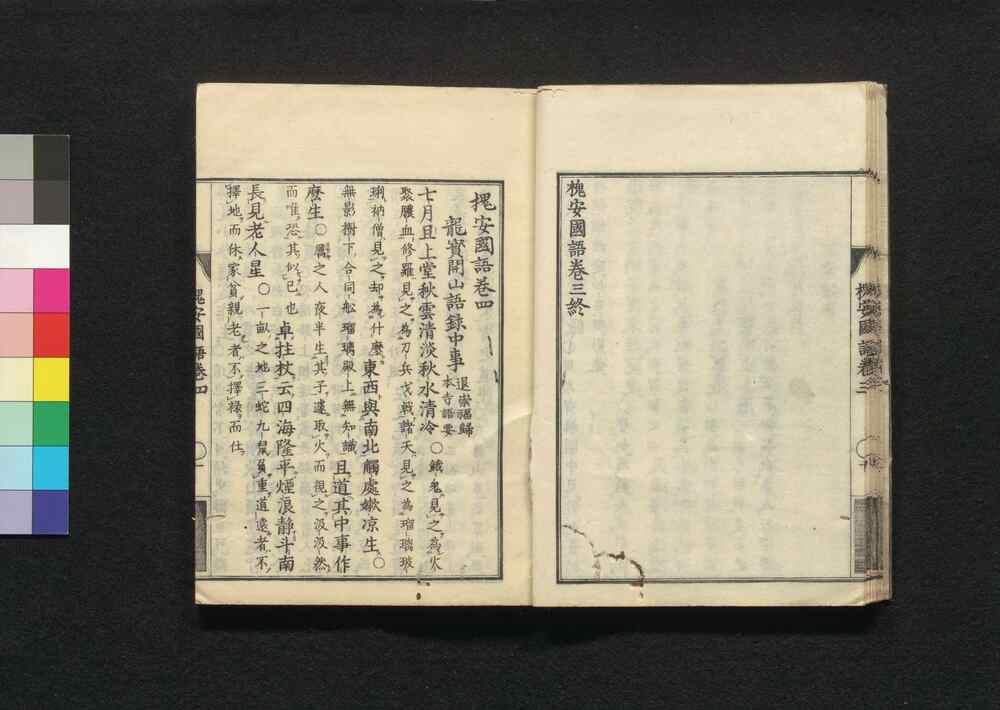 槐安國語卷三終
槐安國語卷三
槐安國語卷四
龍寶開山語錄中事
退崇福歸
本寺語要
七月旦上堂秋雲清淡秋水清冷〇餓鬼見之爲火
聚膿血修羅見之爲刀兵戈戟諸天見之為瑠璃玻
瓈衲僧見之却爲什麼東西與南北觸處嫩凉生〇
無影樹下合同舩瑠璃殿上無知識且道其中事作
麼生〇厲之人夜半生其子遽取火而視之汲汲然
而唯恐其似己也卓拄杖云四海隆平煙浪靜斗南
長見老人星〇一畝之地三蛇九鼠負重道遠者不
擇地而休家貧親老者不擇祿而仕
槐安國語卷四